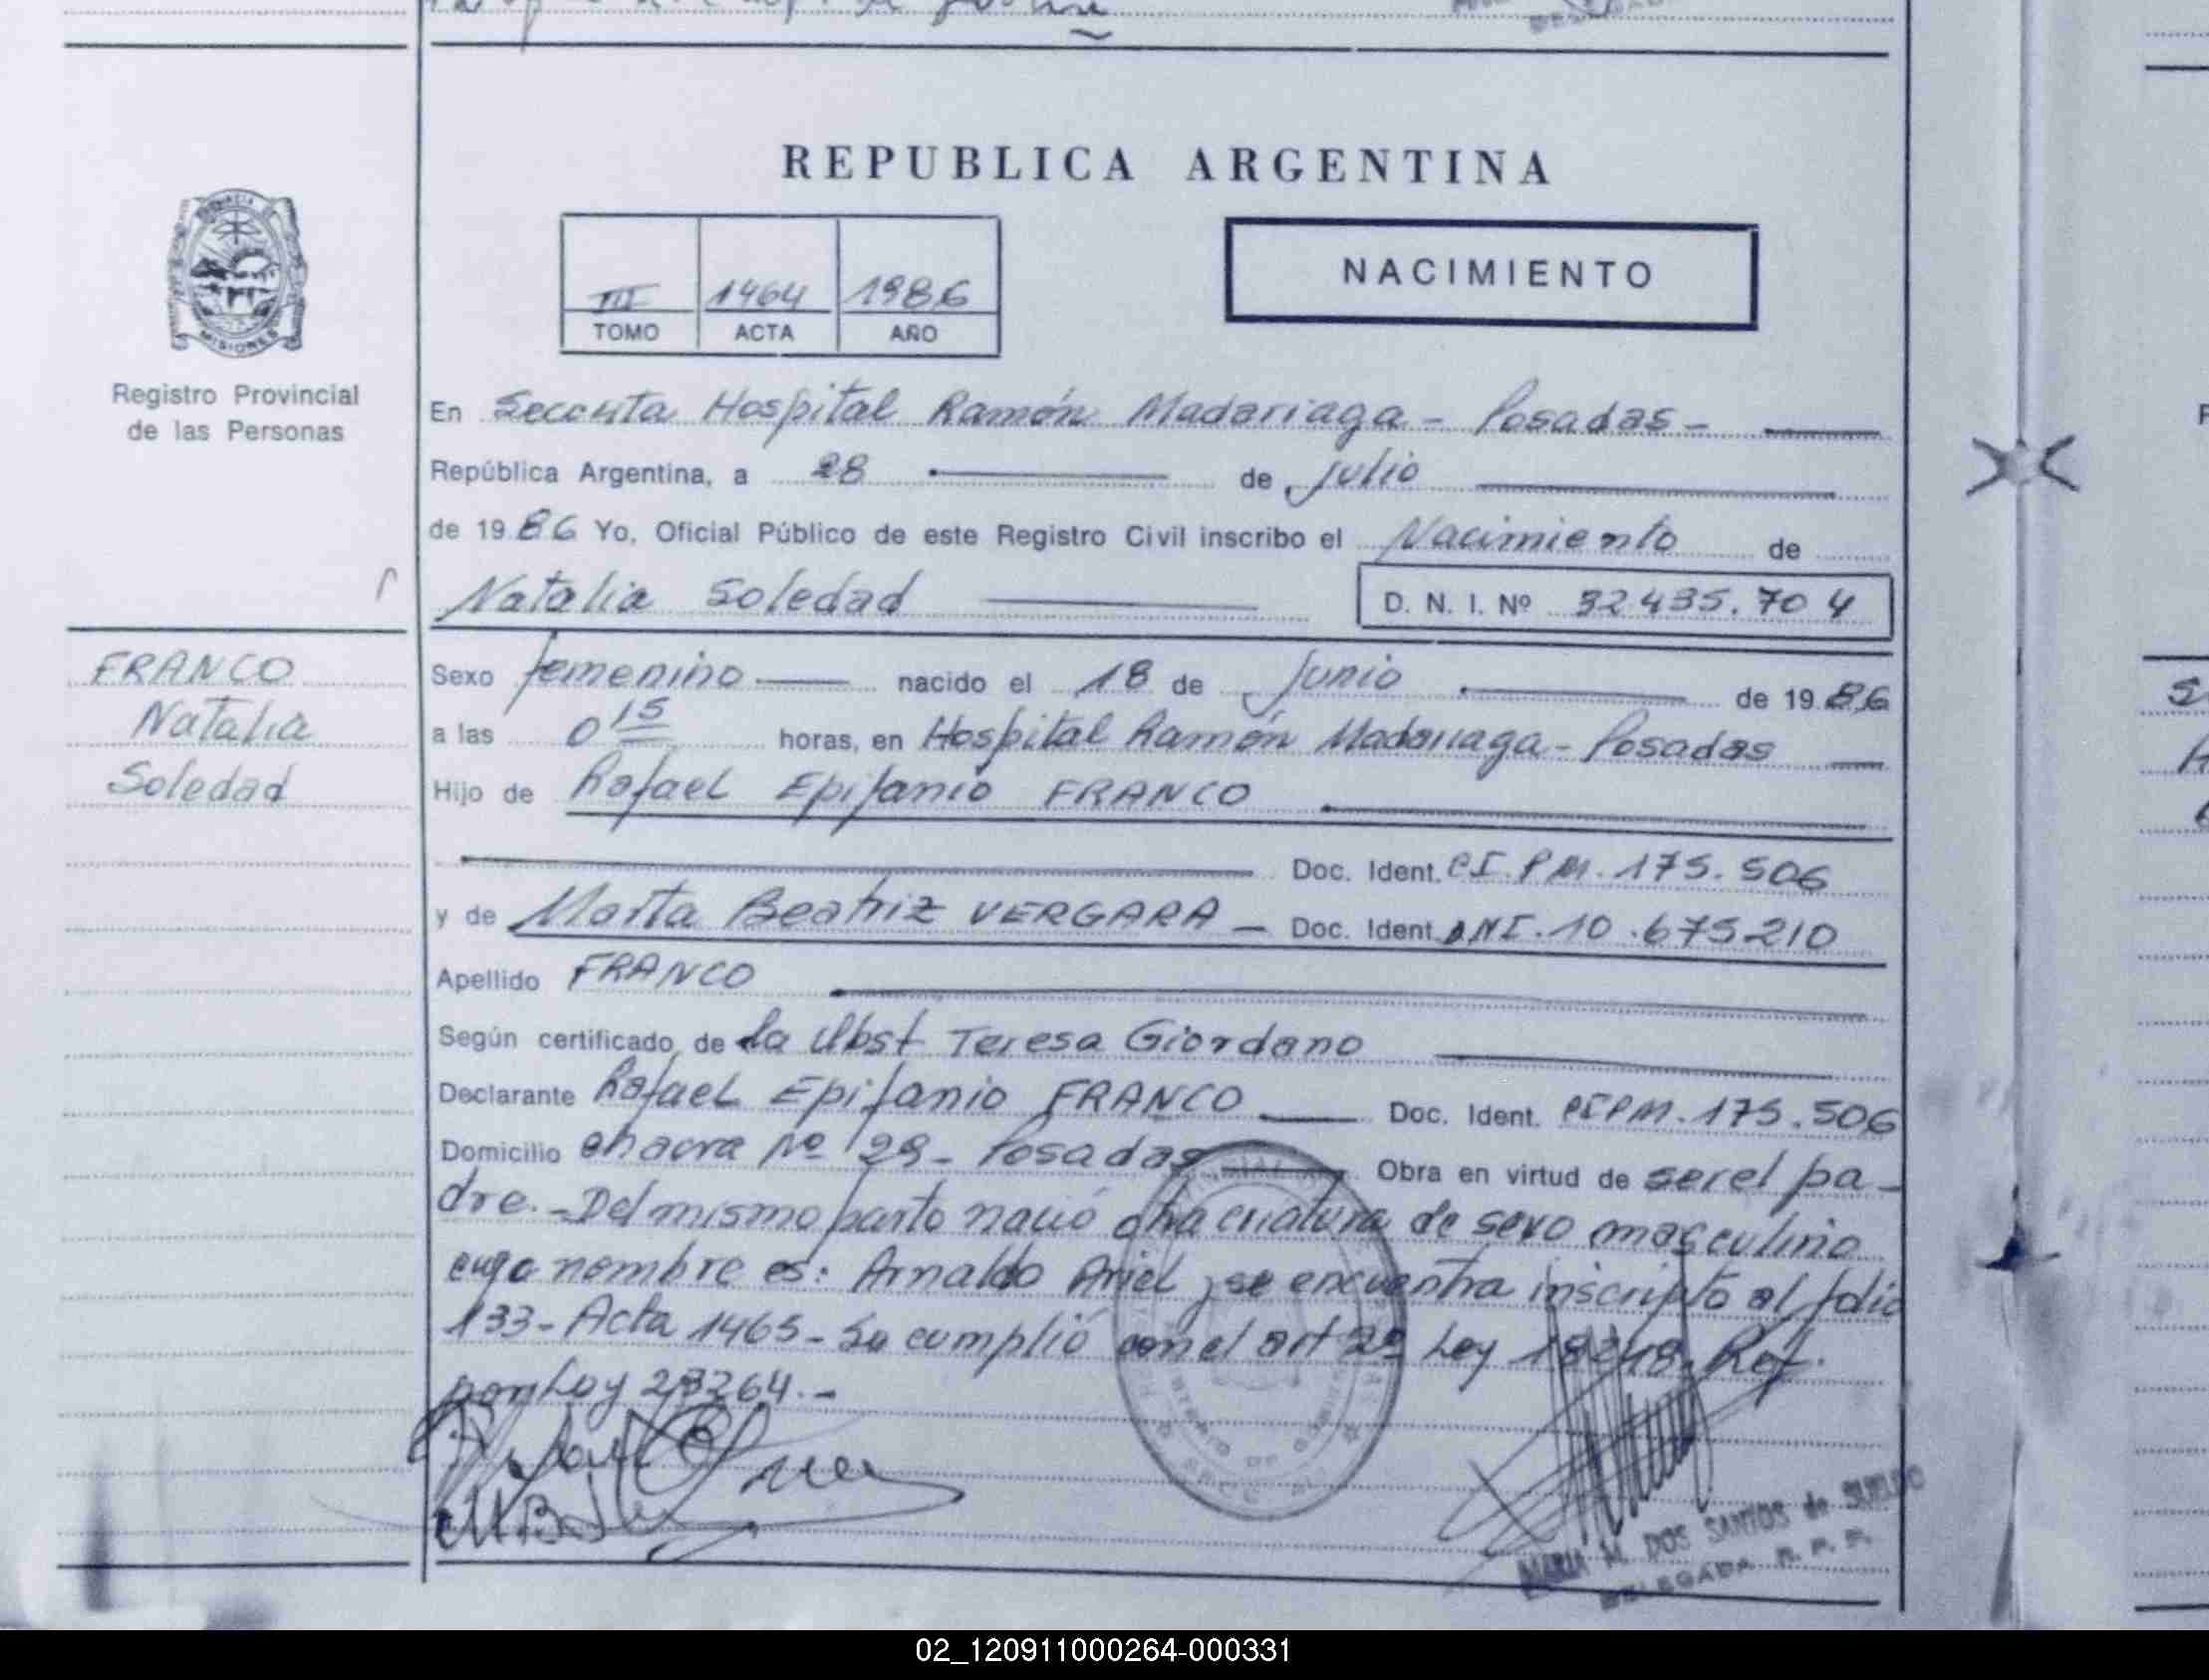 REPUBLICA ARGENTINA
III 1464 1986
TOMO ACTA AÑO
NACIMIENTO
MISIONES
Registro Provincial
de las Personas
En Seccnta Hospital Ramón Madariaga - Posadas -
República Argentina, a 28 de julio
de 1986 Yo, Oficial Público de este Registro Civil inscribo el Nacimiento de
Natalia Soledad D. N. I. Nº 32.435.704
FRANCO
Natalia
Soledad
Sexo femenino nacido el 18 de Junio de 1986
a las 0 15 horas, en Hospital Ramón Madariaga - Posadas
Hijo de Rafael Epifanio FRANCO
Doc. Ident. CI.PM. 175.506
y de Marta Beatriz VERGARA - Doc. Ident. DNI. 10.675210
Apellido FRANCO
Según certificado de la Obst Teresa Giordano
Declarante Rafael Epifanio FRANCO Doc. Ident. CIPM. 175.506
Domicilio chacra Nº 29 - Posadas Obra en virtud de ser el pa-
dre. - Del mismo parto nació otra criatura de sexo masculino
cuyo nombre es: Arnaldo Ariel, se encuentra inscripto al folio
133 - Acta 1465 - Se cumplió con el art 2º Ley 18248. Ref.
por Ley 23264. -
MARIA M. DOS SANTOS de SUELDO
DELEGADA R. P. P.
02_120911000264-000331